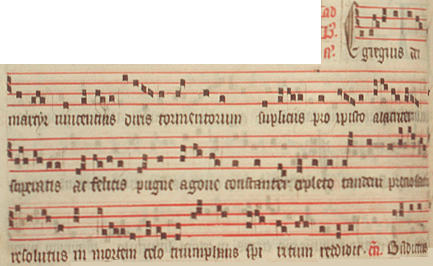 ad
B. Egregius di
a.
martyr vincentius diris tormentorum supliciis pro xpisto alacriter
superatis ac felicis pugne agone constanter expleto tandem
resolutus in mortem celo triumphans spiritum reddidit